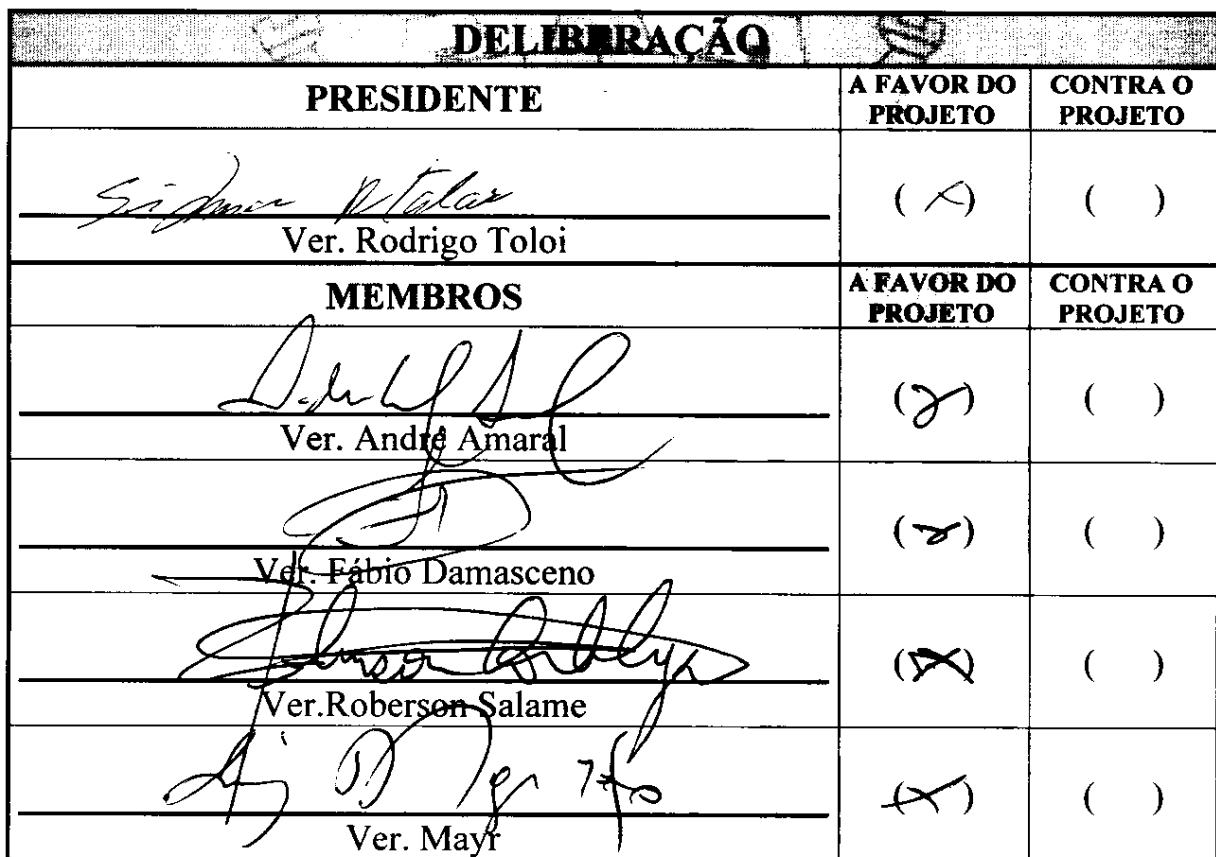 DELIBERAÇÃO
PRESIDENTE
A FAVOR DO PROJETO
CONTRA O PROJETO
Ver. Rodrigo Toloi
( X ) ( )
MEMBROS
A FAVOR DO PROJETO
CONTRA O PROJETO
Ver. André Amaral
( X ) ( )
Ver. Fábio Damasceno
( X ) ( )
Ver.Roberson Salame
( X ) ( )
Ver. Mayr
( X ) ( )